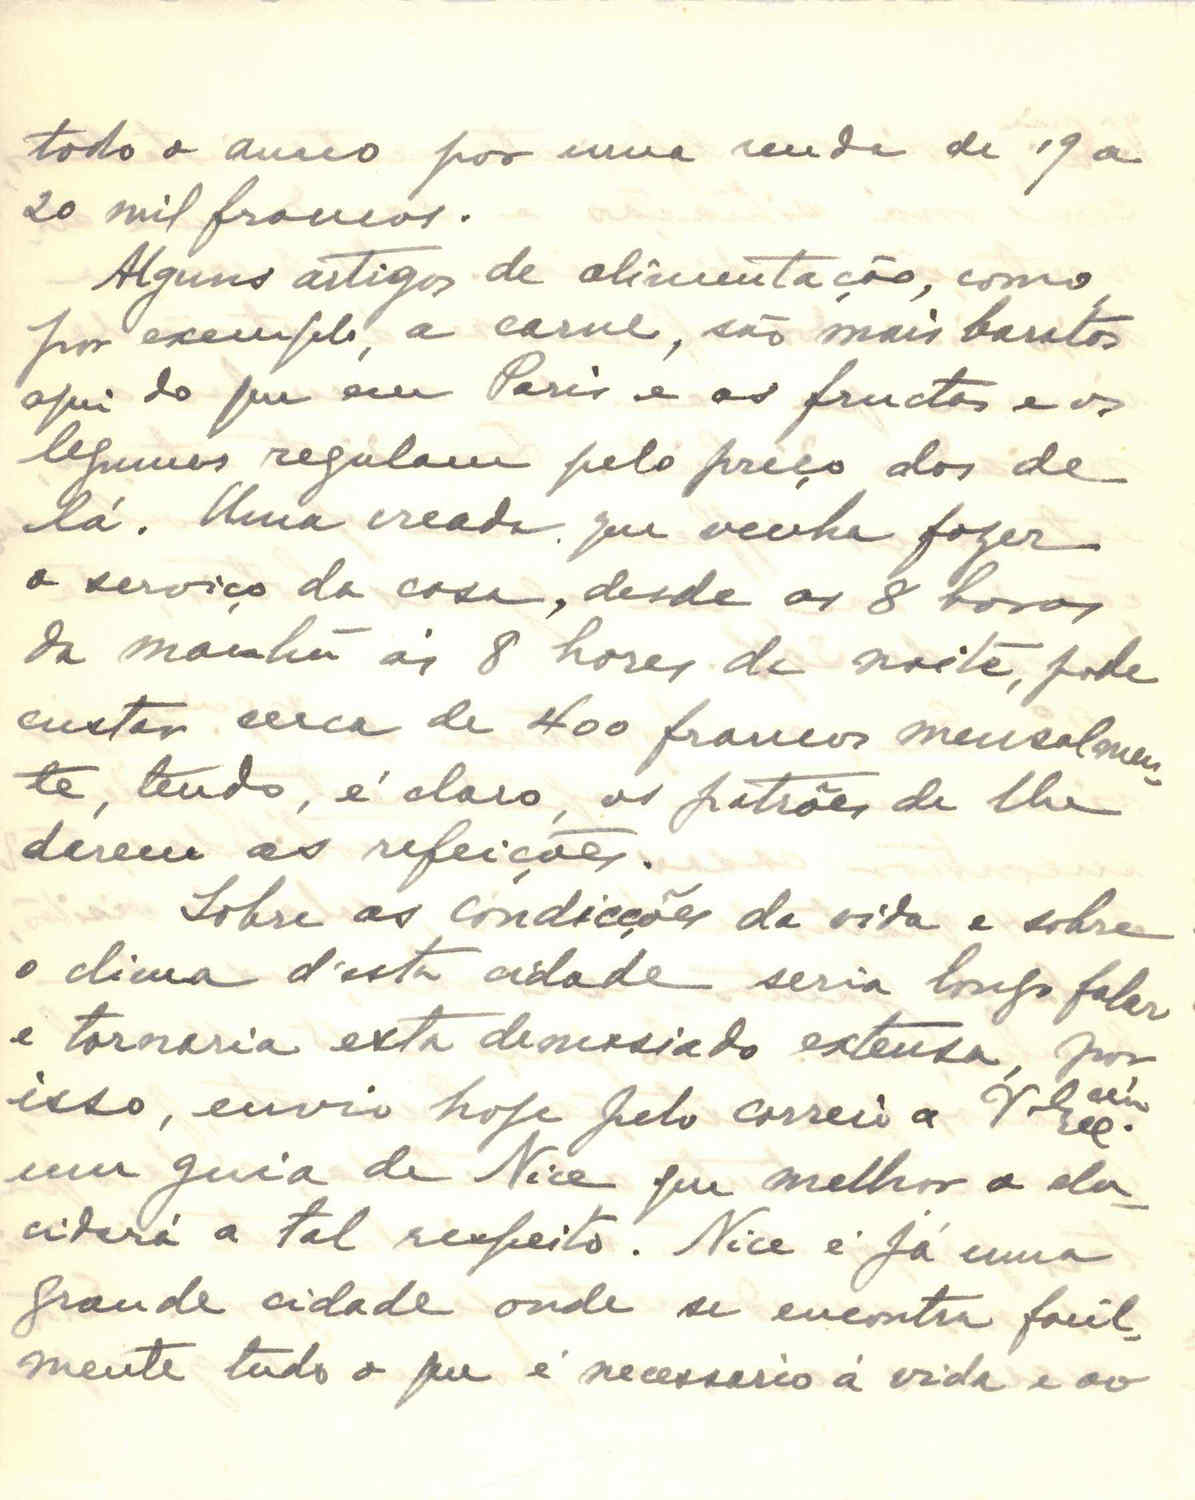 todo o anno por uma renda de 19 a
20 mil francos.
Alguns artigos de alimentação, como,
por exemplo, a carne, são mais baratos
aqui do que em Paris e as fructas e os
legumes regulam pelo preço dos de
lá. Uma creada que venha fazer
o serviço da casa, desde as 8 horas
da manhã ás 8 horas da noite, pode
custar cerca de 400 francos mensalmen-
te, tendo, é claro, os patrões de lhe
darem as refeições.
Sobre as condicções da vida e sobre
o clima d'esta cidade seria longo falar
e tornaria esta demasiado extensa, por
isso, envio hoje pelo correio a V.
um guia de Nice que melhor a elu-
cidará a tal respeito. Nice é já uma
grande cidade onde se encontra facil-
mente tudo o que é necessario á vida e ao